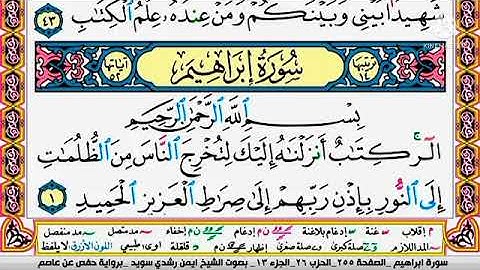 شَهِيدًا بَيْنِي وَبَيْنَكُمْ وَمَنْ عِندَهُۥ عِلْمُ ٱلْكِتَٰبِ ٤٣
سُورَةُ إِبْرَاهِيمَ
بِسْمِ ٱللَّهِ ٱلرَّحْمَٰنِ ٱلرَّحِيمِ
الٓر ۚ كِتَٰبٌ أَنزَلْنَٰهُ إِلَيْكَ لِتُخْرِجَ ٱلنَّاسَ مِنَ ٱلظُّلُمَٰتِ
إِلَى ٱلنُّورِ بِإِذْنِ رَبِّهِمْ إِلَىٰ صِرَٰطِ ٱلْعَزِيزِ ٱلْحَمِيدِ ١
م إقلاب غنة إدغام بلاغنة إدغام ن م إخفاء مد متصل مد منفصل
المد اللازم مد صلة كبرى وصلة صغرى إظهار ن م قلقلة أوى: طبيعي اللون الأزرق لا يلفظ
سورة إبراهيم - الصفحة ٢٥٥ - الحزب ٢٦ - الجزء ١٣ - بصوت الشيخ ايمن رشدي سويد - برواية حفص عن عاصم